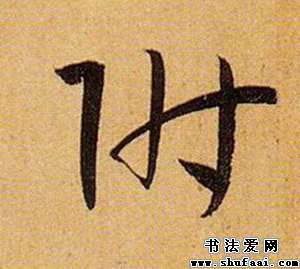 附
书法爱网
www.shufaai.com